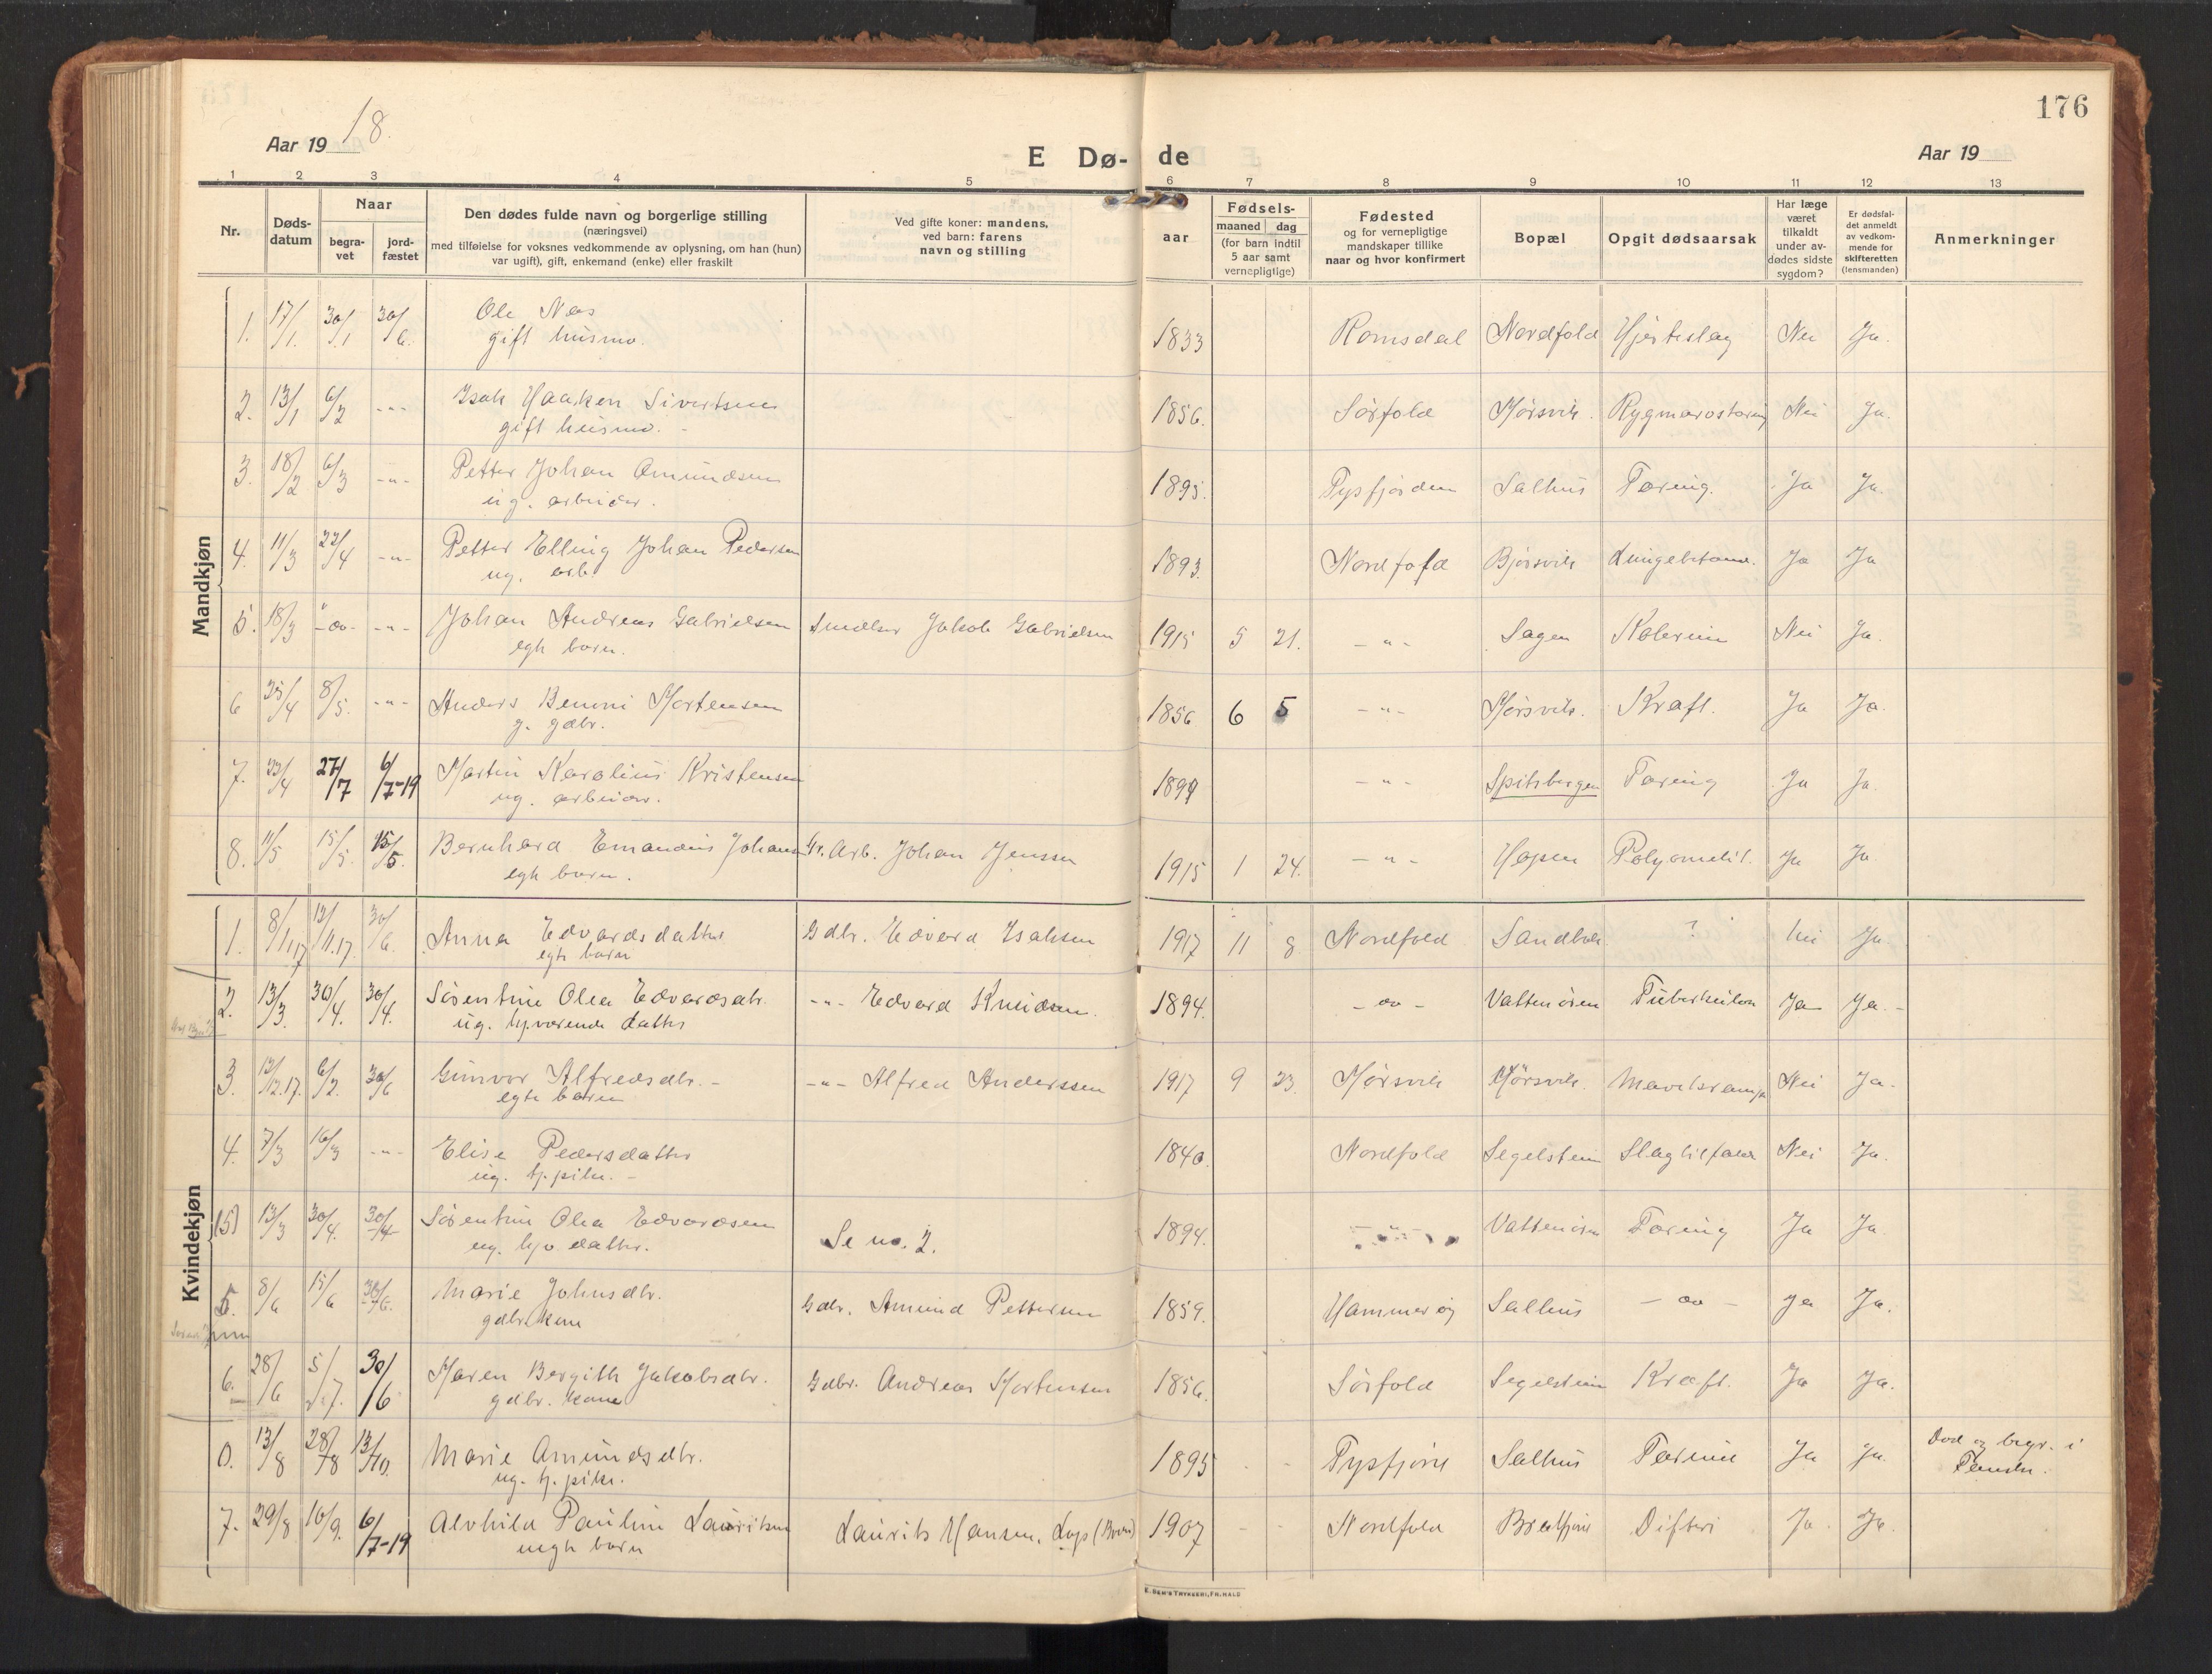 176
Aar 19 18.
E Dø- de
Aar 19
1 2 3 4 5 6 7 8 9 10 11 12 13
Nr.
Døds-
datum
Naar
begra-
vet
jord-
fæstet
Den dødes fulde navn og borgerlige stilling
(næringsvei)
med tilføielse for voksnes vedkommende av oplysning, om han (hun)
var ugift), gift, enkemand (enke) eller fraskilt
Ved gifte koner: mandens,
ved barn: farens
navn og stilling
aar
Fødsels-
maaned dag
(for barn indtil
5 aar samt
vernepligtige)
Fødested
og for vernepligtige
mandskaper tillike
naar og hvor konfirmert
Bopæl
Opgit dødsaarsak
Har læge
været
tilkaldt
under av-
dødes sidste
sygdom?
Er dødsfal-
det anmeldt
av vedkom-
mende for
skifteretten
(lensmanden)
Anmerkninger
Mandkjøn
1. 17/1. 30/1 30/6. Ole Næs 1833 Romsdal Nordfold Hjerteslag Nei Ja.
gift husmd.
2. 13/1 6/2 -"- Isak Haaken Sivertsen 1856. Sørfold Mørsvik. Rygmarvstæring Nei Ja.
gift husmd. -
3. 18/2 6/3 -"- Petter Johan Amundsen 1895. Tysfjorden Salhus Tæring. Ja Ja.
ug. arbeider.
4. 11/3 22/4 -"- Petter Elling Johan Pedersen 1893. Nordfold Bjørsvik Lungebetænd. Ja Ja
ug. arb.
5. 18/3 -do- -"- Johan Andreas Gabrielsen Smelter Jakob Gabrielsen 1915 5 21. -"- Sagen Kolerine Nei Ja.
egte barn.
6 25/4 8/5. -"- Anders Benoni Mortensen 1856 6 5 -"- Mørsvik. Kræft. Ja Ja.
g. gdbr.
7. 22/4 27/7 6/7-19 Martin Karolius Kristensen 1899 -"- Spitsbergen Tæring Ja Ja.
ug. arbeider.
8. 11/5 15/5. 15/5. Bernhard Emandius Johansen Gr. Arb. Johan Jenssen 1915 1 24. -"- Hopen Polyomelit. Ja Ja
egte barn.
Kvindekjøn
1. 8/11 17 12/11.17. 30/6. Anna Edvardsdatter Gdbr. Edvard Isaksen 1917 11 8 Nordfold Sandbak ? Nei Ja.
egte barn
2. 13/3. 30/4. 30/4. Sørentine Olea Edvardsdtr. -"- Edvard Knudsen. 1894. -do- Vattenøren Tuberkulos Ja Ja.-
ug. hj.værende datter
3. 12/12.17. 6/2. 30/6 Gunvor Alfredsdtr. - -"- Alfred Anderssen 1917 9 23. Mørsvik Mørsvik. Mavekrampe Nei Ja.
egte barn
4. 7/3 16/3 -"- Elise Pedersdatter 1840. Nordfold Segelstein Slagtilfæld Nei Ja.
ug. tj. pike. -
(5) 13/3 30/4. 30/4 Sørentine Olea Edvardsen Se no. 2. 1894. -"- Vattenøren Tæring Ja Ja.
ug. hjv. datter.
5. 8/6 15/6 30/6. Marie Johnsdtr. Gdbr. Amund Pettersen 1859. Hammerøy Salhus -do- Ja Ja.
gdbr.kone
6. 28/6 5/7. 30/6 Maren Bergith Jakobsdtr. Gdbr. Andreas Mortensen 1856. Sørfold Segelstein Kræft. Ja Ja.
gdbr. kone
0. 13/8 28/8 13/10. Marie Amundsdtr. 1895 - - Tysfjord Salhus Tæring Ja Ja. Død og begr. i
ug. tj. pike. Fauske.
7. 29/8 16/9. 6/7-19 Alvhild Pauline Lauritsen Laurits Hansen, 1907 - - Nordfold Bredfjord Difteri Ja Ja.
uegte barn
E. SEM'S TRYKKERI, FR.HALD